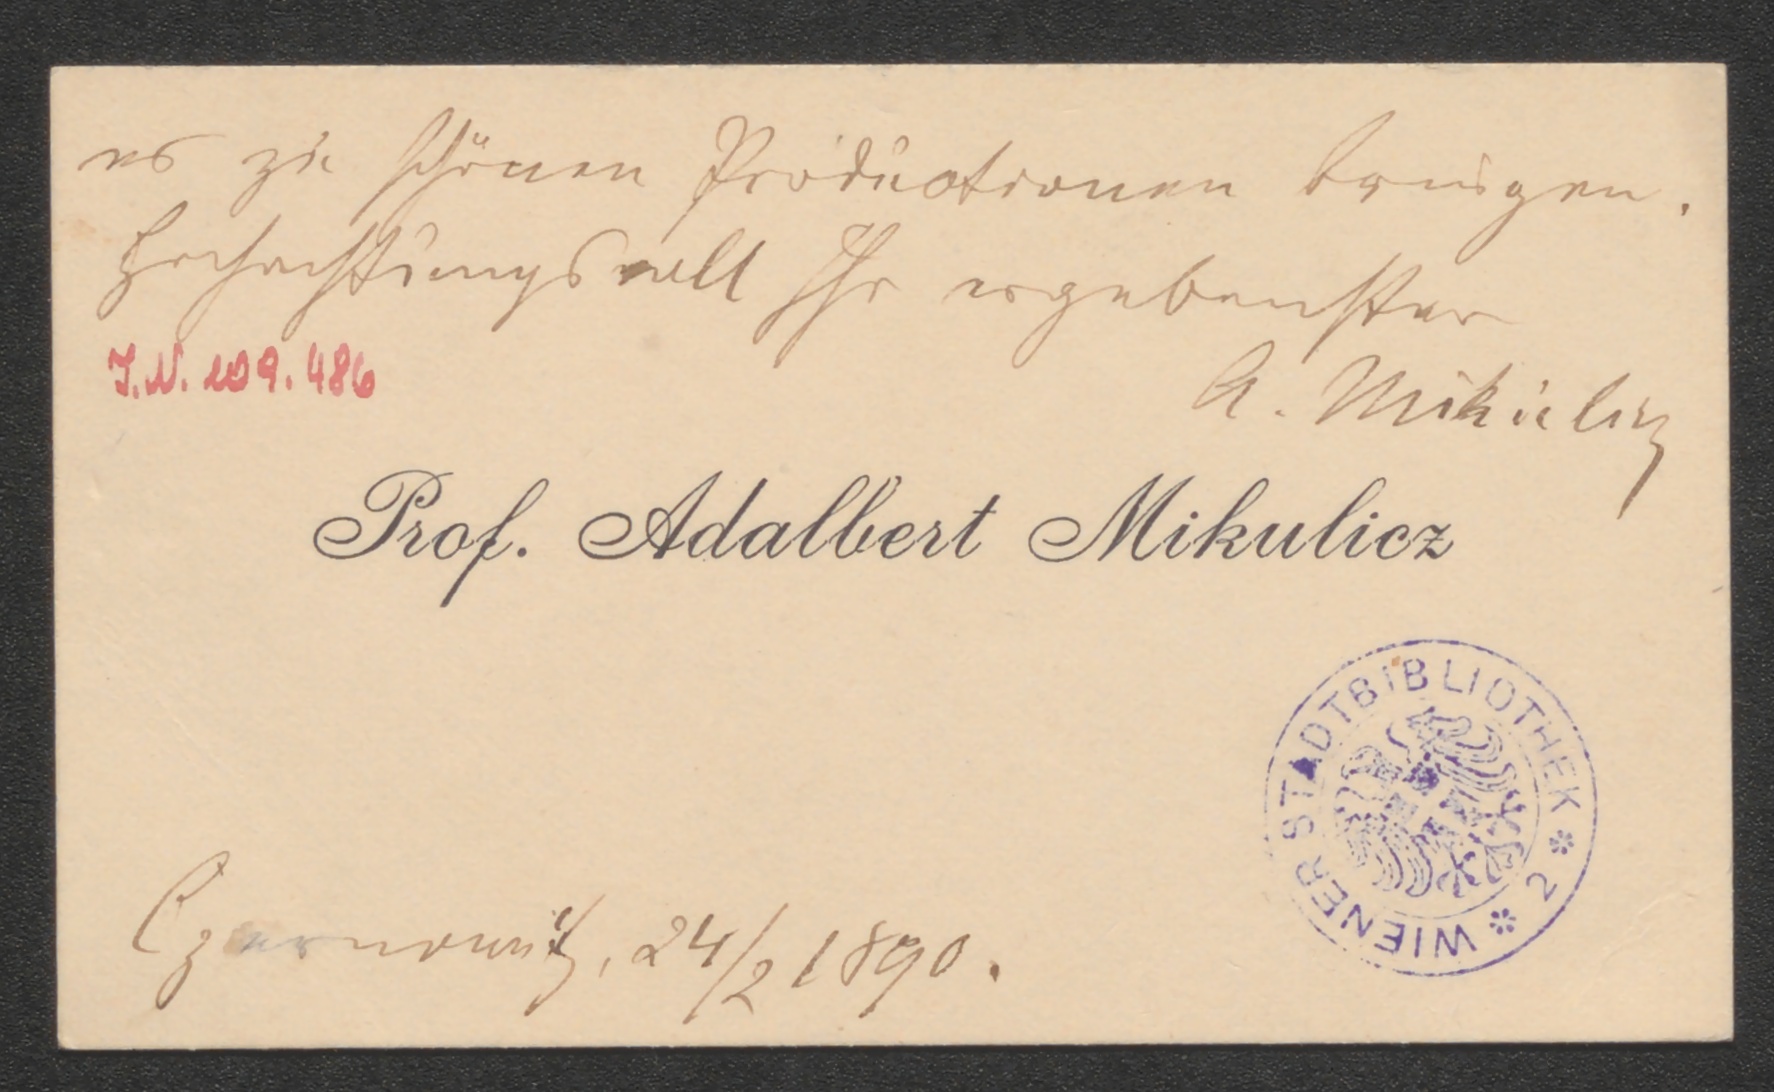 es zu schönen Productionen bringen.
Hochachtungsvoll Ihr ergebenster
J.N. 109.486
A. Mikulicz
Prof. Adalbert Mikulicz
WIENER STADTBIBLIOTHEK * 2 *
Czernowitz, 24/2 1890.